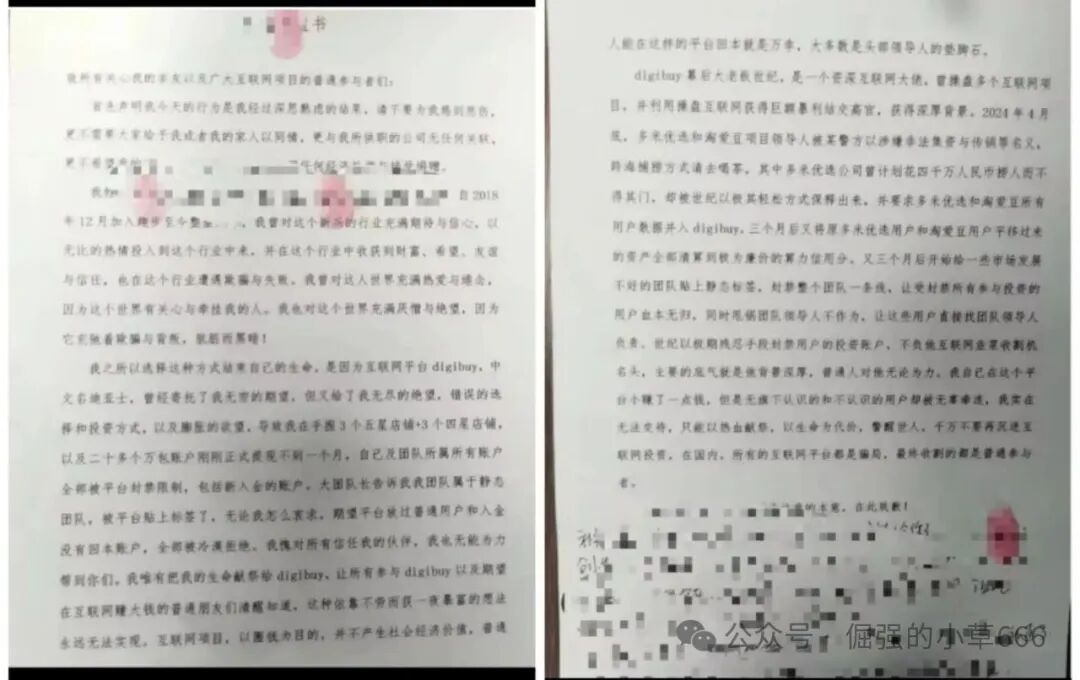 书
致所有关心我的亲友以及广大互联网项目的普通参与者们:
首先声明我今天的行为是我经过深思熟虑的结果,请不要为我感到悲伤,
更不需要大家给予我或者我的家人以同情,更与我所供职的公司无任何关联,
更不希望
我 自2018
年12月加入 至今整 我曾对这个新 的行业充满期待与信心,以
无比的热情投入到这个行业中来,并在这个行业中收获到财富、希望、友谊
与信任,也在这个行业遭遇欺骗与失败。我曾对这人世界充满热爱与
因为这个世界有关心与牵挂我的人。我也对这个世界充满厌憎与绝望,因为
它充弛着欺骗与背叛,肮脏而黑暗!
我之所以选择这种方式结束自己的生命,是因为互联网平台digibuy,中
文名迪亚士,曾经寄托了我无穷的期望,但又给了我无尽的绝望,错误的选
择和投资方式,以及膨胀的欲望,导致我在手握3个五星店铺+3个四星店铺,
以及二十多个万包账户刚刚正式提现不到一个月,自己及团队所属所有账户
全部被平台封禁限制,包括新入金的账户。大团队长告诉我我团队属于静态
团队,被平台贴上标签了,无论我怎么哀求,期望平台放过普通用户和入金
没有回本账户,全部被冷漠拒绝。我愧对所有信任我的伙伴,我也无能为力
帮到你们。我唯有把我的生命献祭给digibuy、让所有参与digibuy以及期望
在互联网赚大钱的普通朋友们清醒知道,这种依靠不劳而获一夜暴富的想法
永远无法实现。互联网项目,以圈钱为目的,并不产生社会经济价值,普通
人能在这样的平台回本就是万幸,大多数是头部领导人的垫脚石。
digibuy幕后大老板世纪,是一个资深互联网大佬,曾操盘多个互联网项
目,并利用操盘互联网获得巨额暴利结交高官,获得深厚背景。2024年4月
底,多米优选和淘爱豆项目领导人被某警方以涉嫌非法集资与传销等名义,
跨海捕捞方式请去喝茶,其中多米优选公司曾计划花四千万人民币捞人而不
得其门,却被世纪以极其轻松方式保释出来,并要求多米优选和淘爱豆所有
用户数据并入digibuy,三个月后又将原多米优选用户和淘爱豆用户平移过来
的资产全部清算到极为廉价的算力信用分。又三个月后开始给一些市场发展
不好的团队贴上静态标签,封禁整个团队一条线,让受封禁所有参与投资的
用户血本无归,同时甩锅团队领导人不作为,让这些用户直接找团队领导人
负责。世纪以极期残忍手段封禁用户的投资账户,不负他互联网韭菜收割机
名头,主要的底气就是他背景深厚,普通人对他无论为力。我自己在这个平
台小赚了一点钱,但是无旗下认识的和不认识的用户却被无辜牵连,我实在
无法交待,只能以热血献祭,以生命为代价,警醒世人,千万不要再沉迷互
联网投资,在国内,所有的互联网平台都是骗局,最终收割的都是普通参与
者。
的本意,在此致歉!
公众号·倔强的小草666